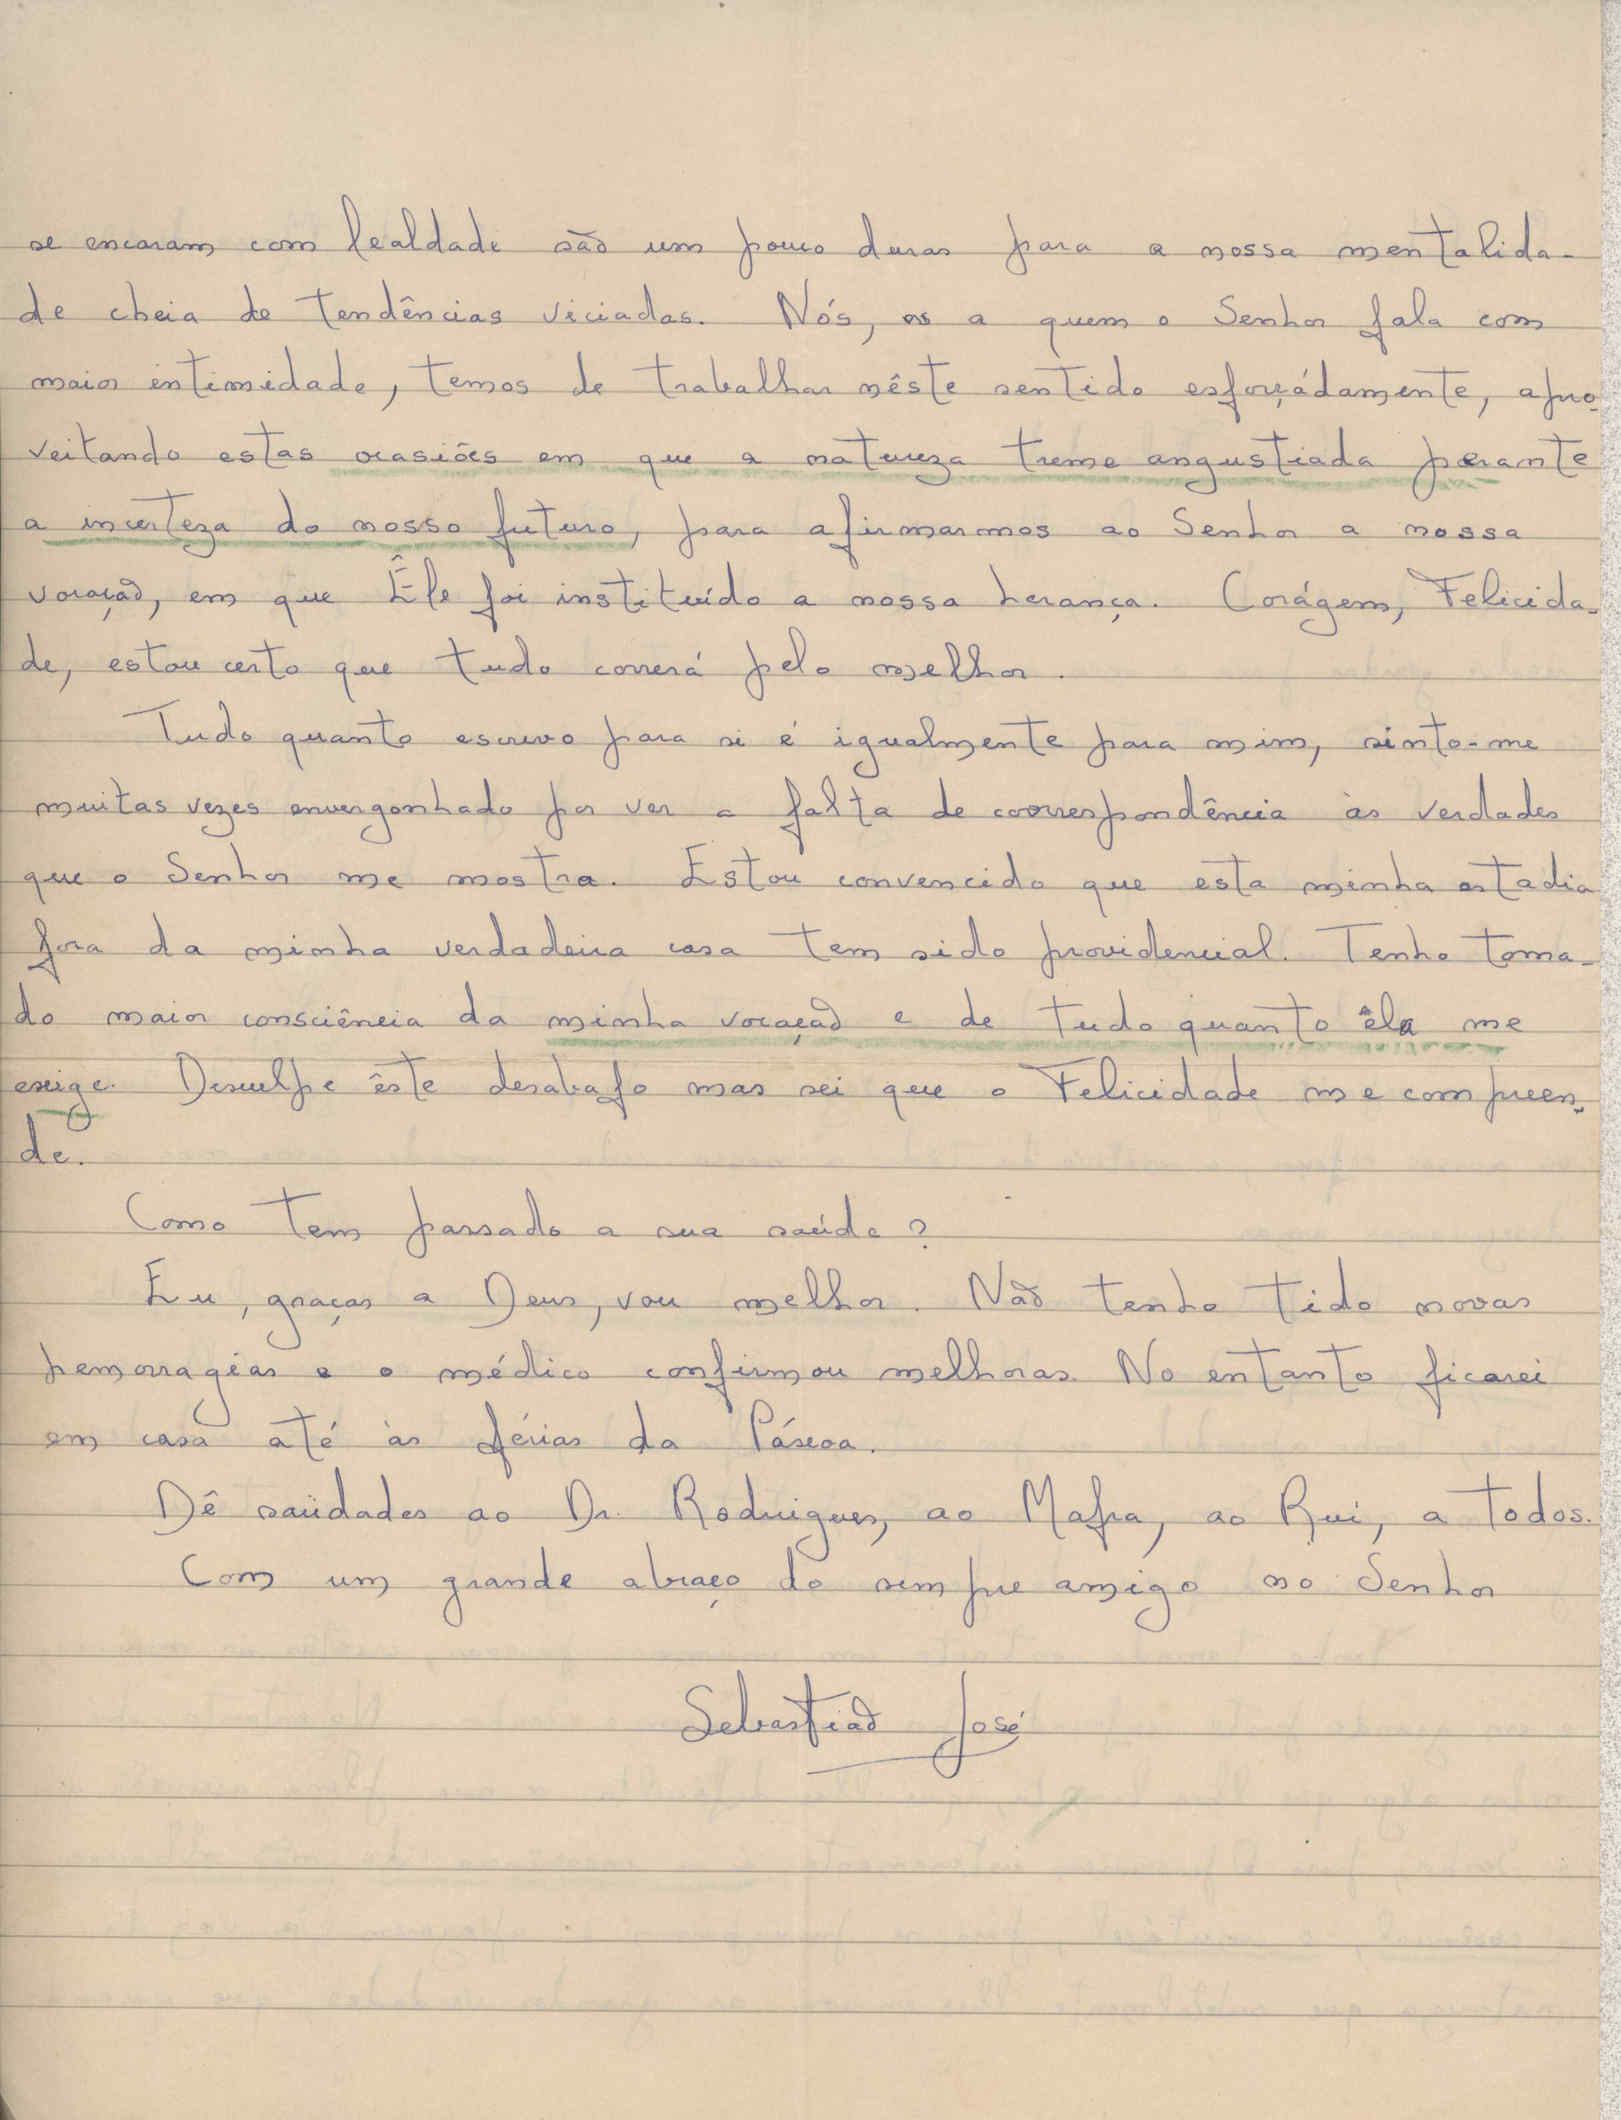 se encaram com lealdade são um pouco duras para a nossa mentalida-
de cheia de tendências viciadas. Nós, os a quem o Senhor fala com
maior intimidade, temos de trabalhar nêste sentido esforçádamente, apro-
veitando estas ocasiões em que a natureza treme angustiada perante
a incerteza do nosso futuro, para afirmarmos ao Senhor a nossa
vocação, em que Êle foi instituído a nossa herança. Corágem, Felicida-
de, estou certo que tudo correrá pelo melhor.
Tudo quanto escrevo para si é igualmente para mim, sinto-me
muitas vezes envergonhado por ver a falta de correspondência às verdades
que o Senhor me mostra. Estou convencido que esta minha estadia
fora da minha verdadeira casa tem sido providencial. Tenho toma-
do maior consciência da minha vocação e de tudo quanto êla me
exige. Desculpe êste desabafo mas sei que o Felicidade me compreen-
de.
Como tem passado a sua saúde?
Eu, graças a Deus, vou melhor. Não tenho tido novas
hemorragias e o médico confirmou melhoras. No entanto ficarei
em casa até às férias da Páscoa.
Dê saüdades ao Dr. Rodrigues, ao Mafra, ao Rui, a todos.
Com um grande abraço do sempre amigo no Senhor
Sebastião José